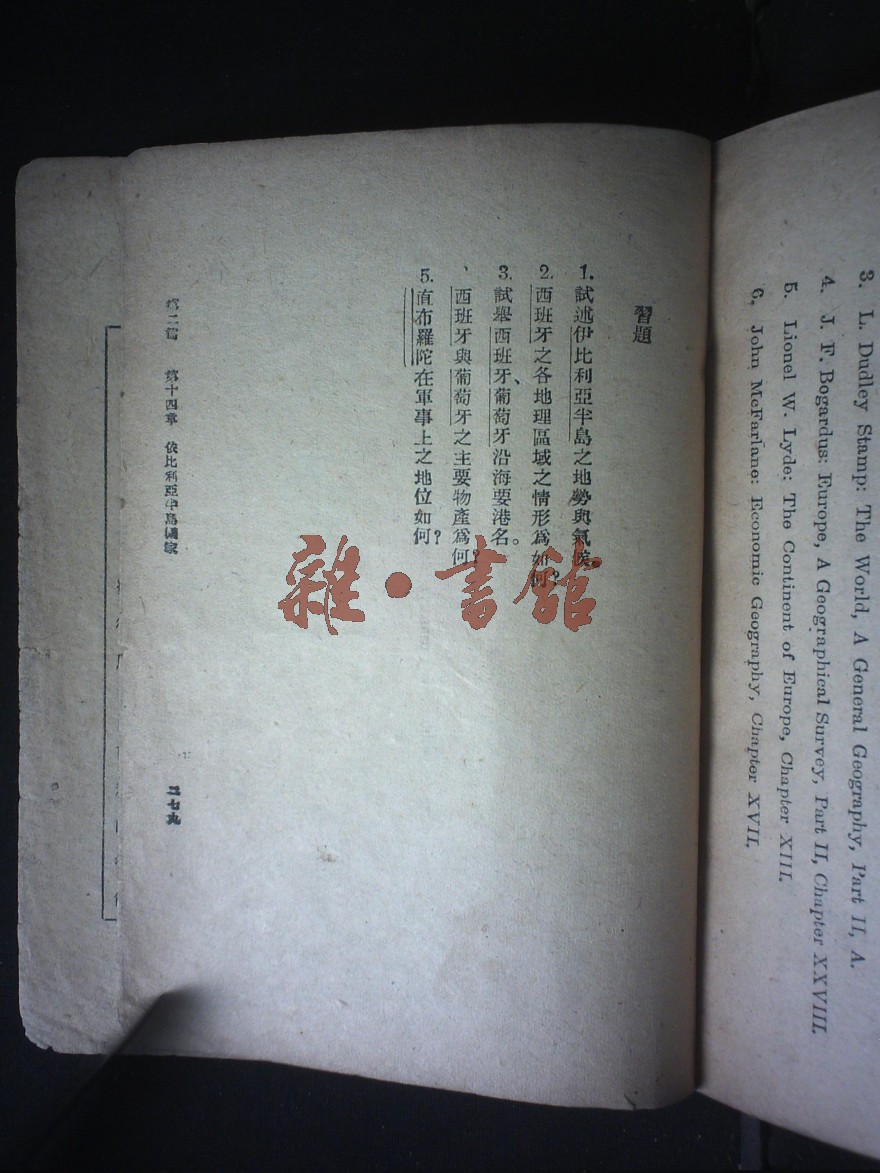 3. L. Dudley Stamp: The World, A General Geography, Part II, A.
4. J. F. Bogardus: Europe, A Geographical Survey, Part II, Chapter XXVIII.
5. Lionel W. Lyde: The Continent of Europe, Chapter XIII.
6. John McFarlane: Economic Geography, Chapter XVII.
習題
1. 試述伊比利亞半島之地勢與氣候
2. 西班牙之各地理區域之情形爲如何?
3. 試舉西班牙、葡萄牙沿海要港名。
、西班牙與葡萄牙之主要物產爲何?
5. 直布羅陀在軍事上之地位如何?
第二篇 第十四章 依比利亞半島國家
二七九
雜·書館